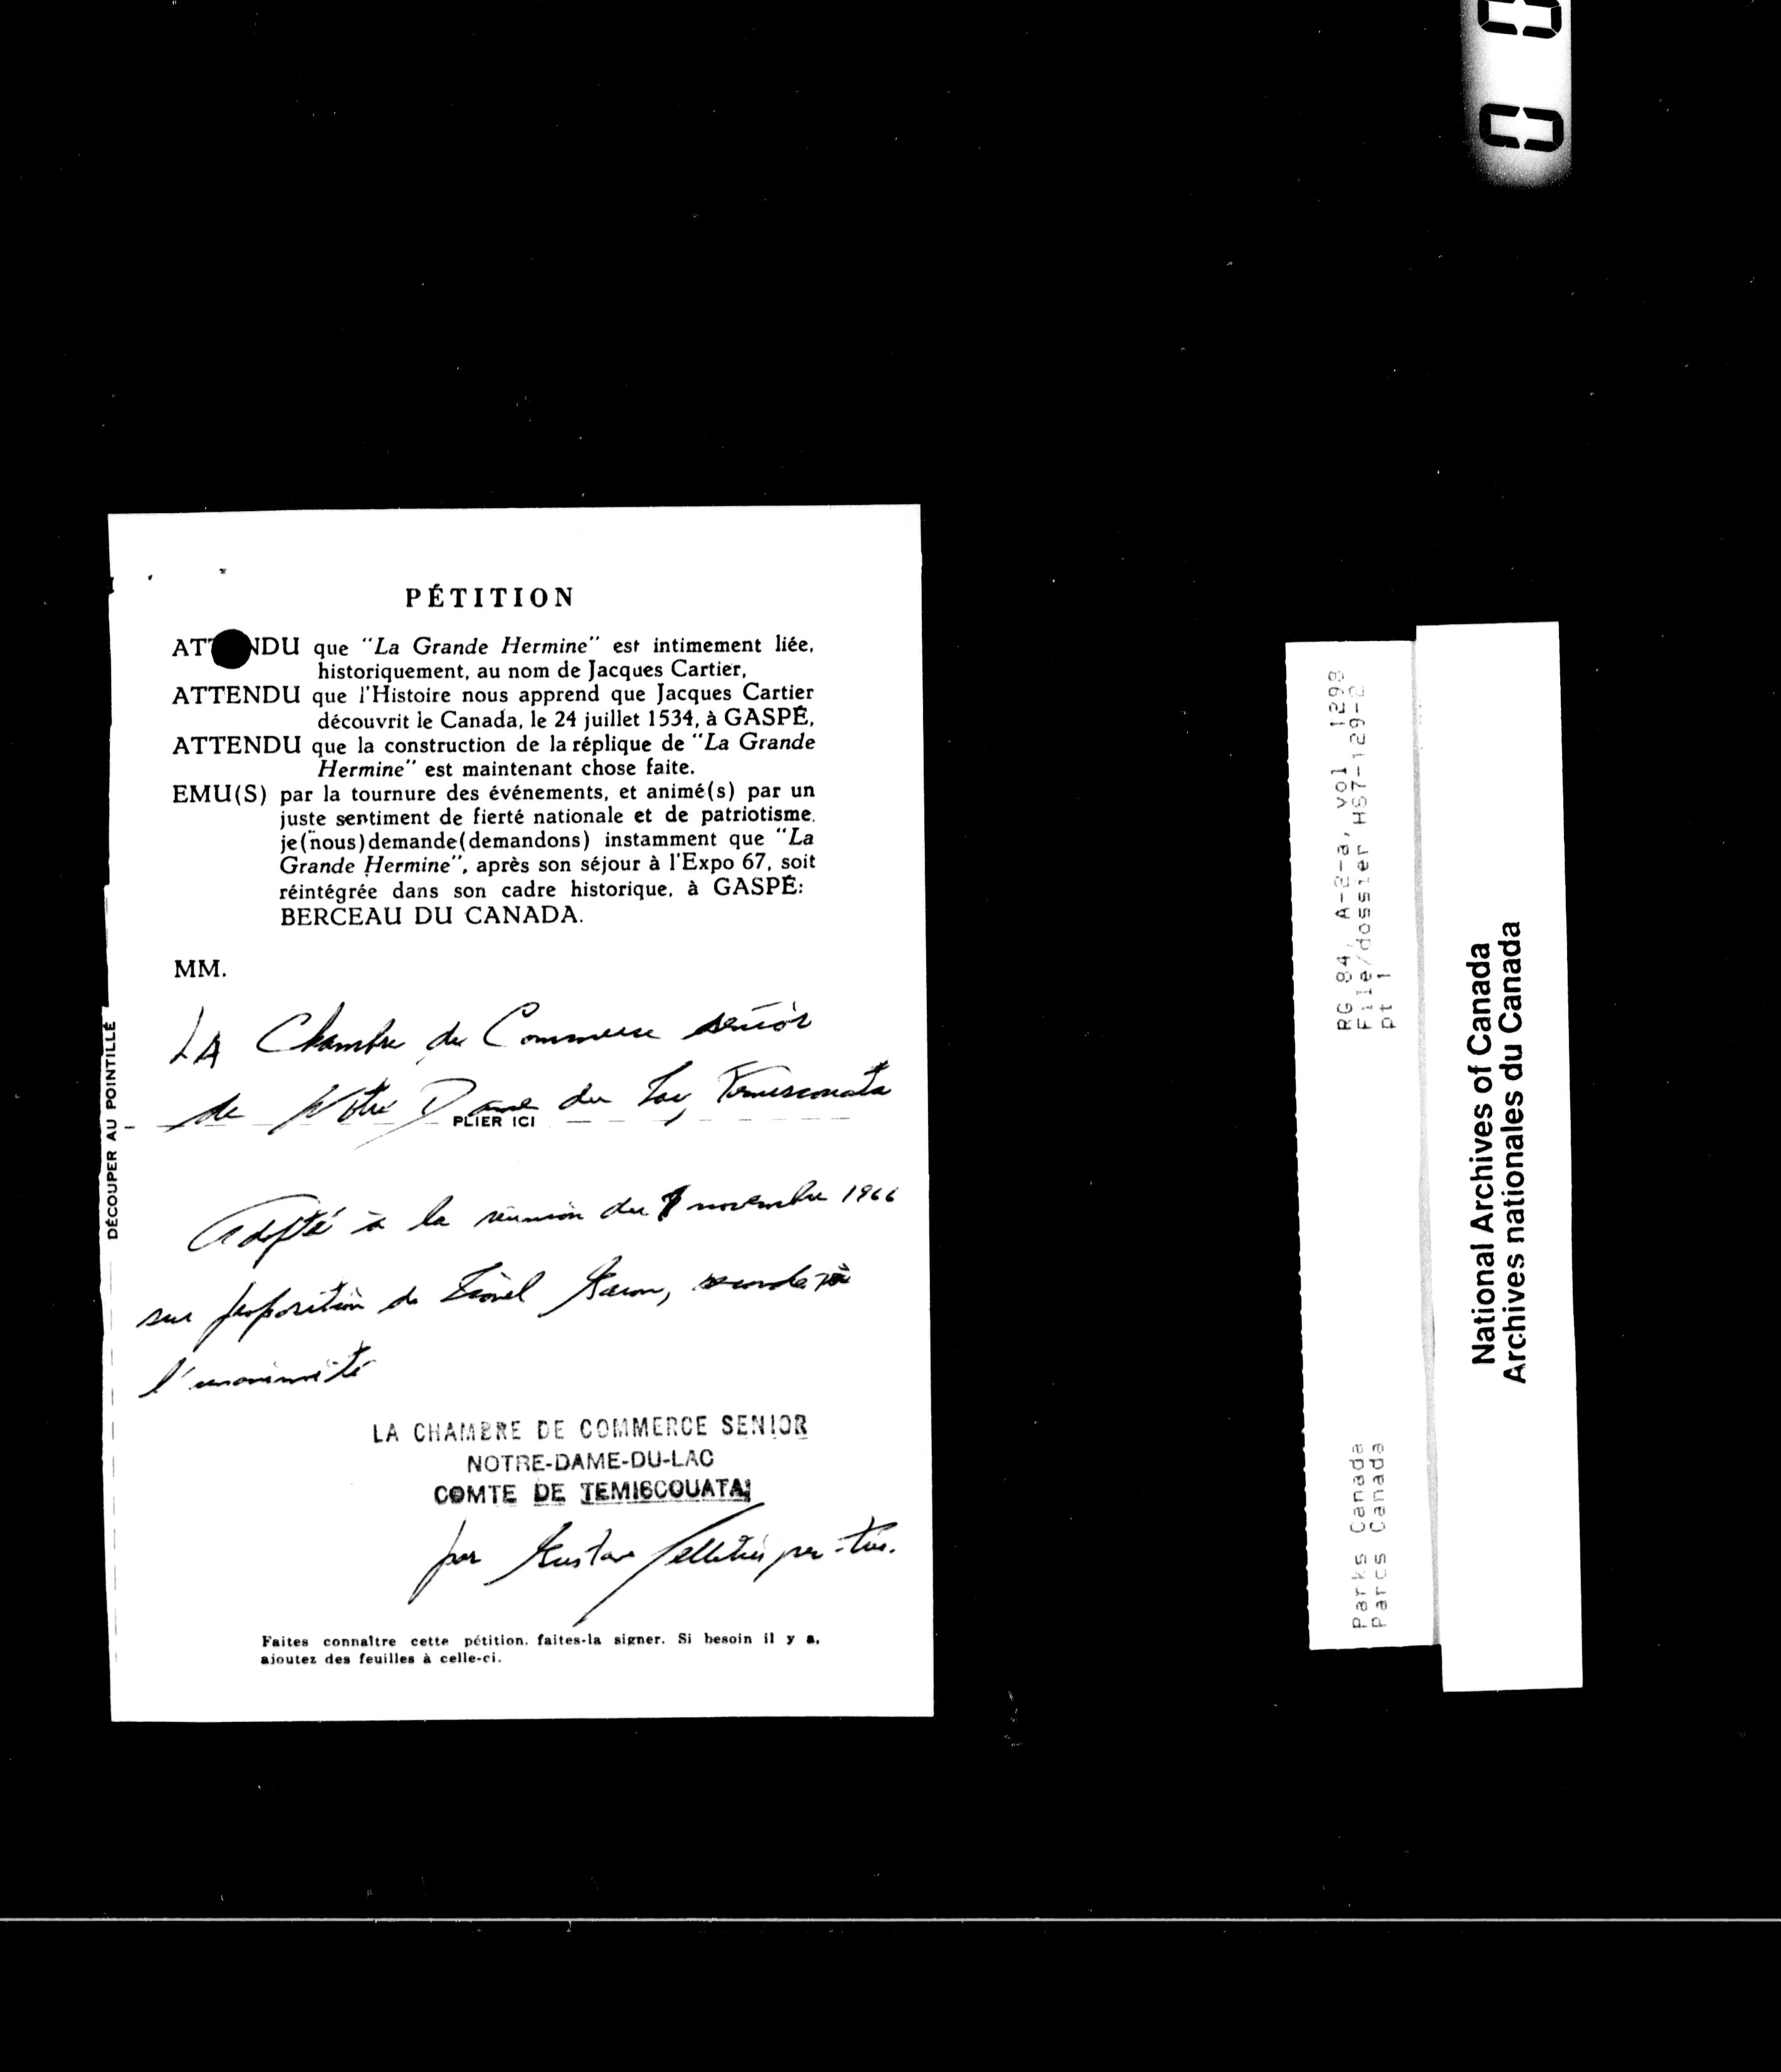 PÉTITION
ATTENDU que "La Grande Hermine" est intimement liée,
historiquement, au nom de Jacques Cartier,
ATTENDU que l'Histoire nous apprend que Jacques Cartier
découvrit le Canada, le 24 juillet 1534, à GASPÉ,
ATTENDU que la construction de la réplique de "La Grande
Hermine" est maintenant chose faite.
EMU(S) par la tournure des événements, et animé(s) par un
juste sentiment de fierté nationale et de patriotisme,
je(nous)demande(demandons) instamment que "La
Grande Hermine", après son séjour à l'Expo 67, soit
réintégrée dans son cadre historique, à GASPÉ:
BERCEAU DU CANADA.
MM.
LA Chambre de Commerce sénior
de Notre Dame du Lac, Temiscouata
PLIER ICI
DÉCOUPER AU POINTILLÉ
Adopté à la réunion du novembre 1966
sur proposition de Lionel secondé à
l'unanimité
LA CHAMBRE DE COMMERCE SENIOR
NOTRE-DAME-DU-LAC
COMTE DE TEMISCOUATA
par Gustave Pelletier
Faites connaître cette pétition, faites-la signer. Si besoin il y a,
ajoutez des feuilles à celle-ci.
RG 84, A-2-a, vol 1298
File/dossier HS7-129-2
pt 1
Parks Canada
Parcs Canada
National Archives of Canada
Archives nationales du Canada